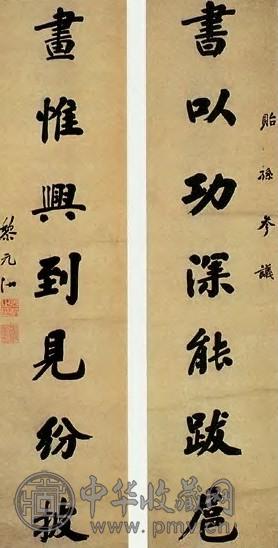 貽孫參議
書以功深能跋扈
畫惟興到見紛披
黎元洪
中华收藏网